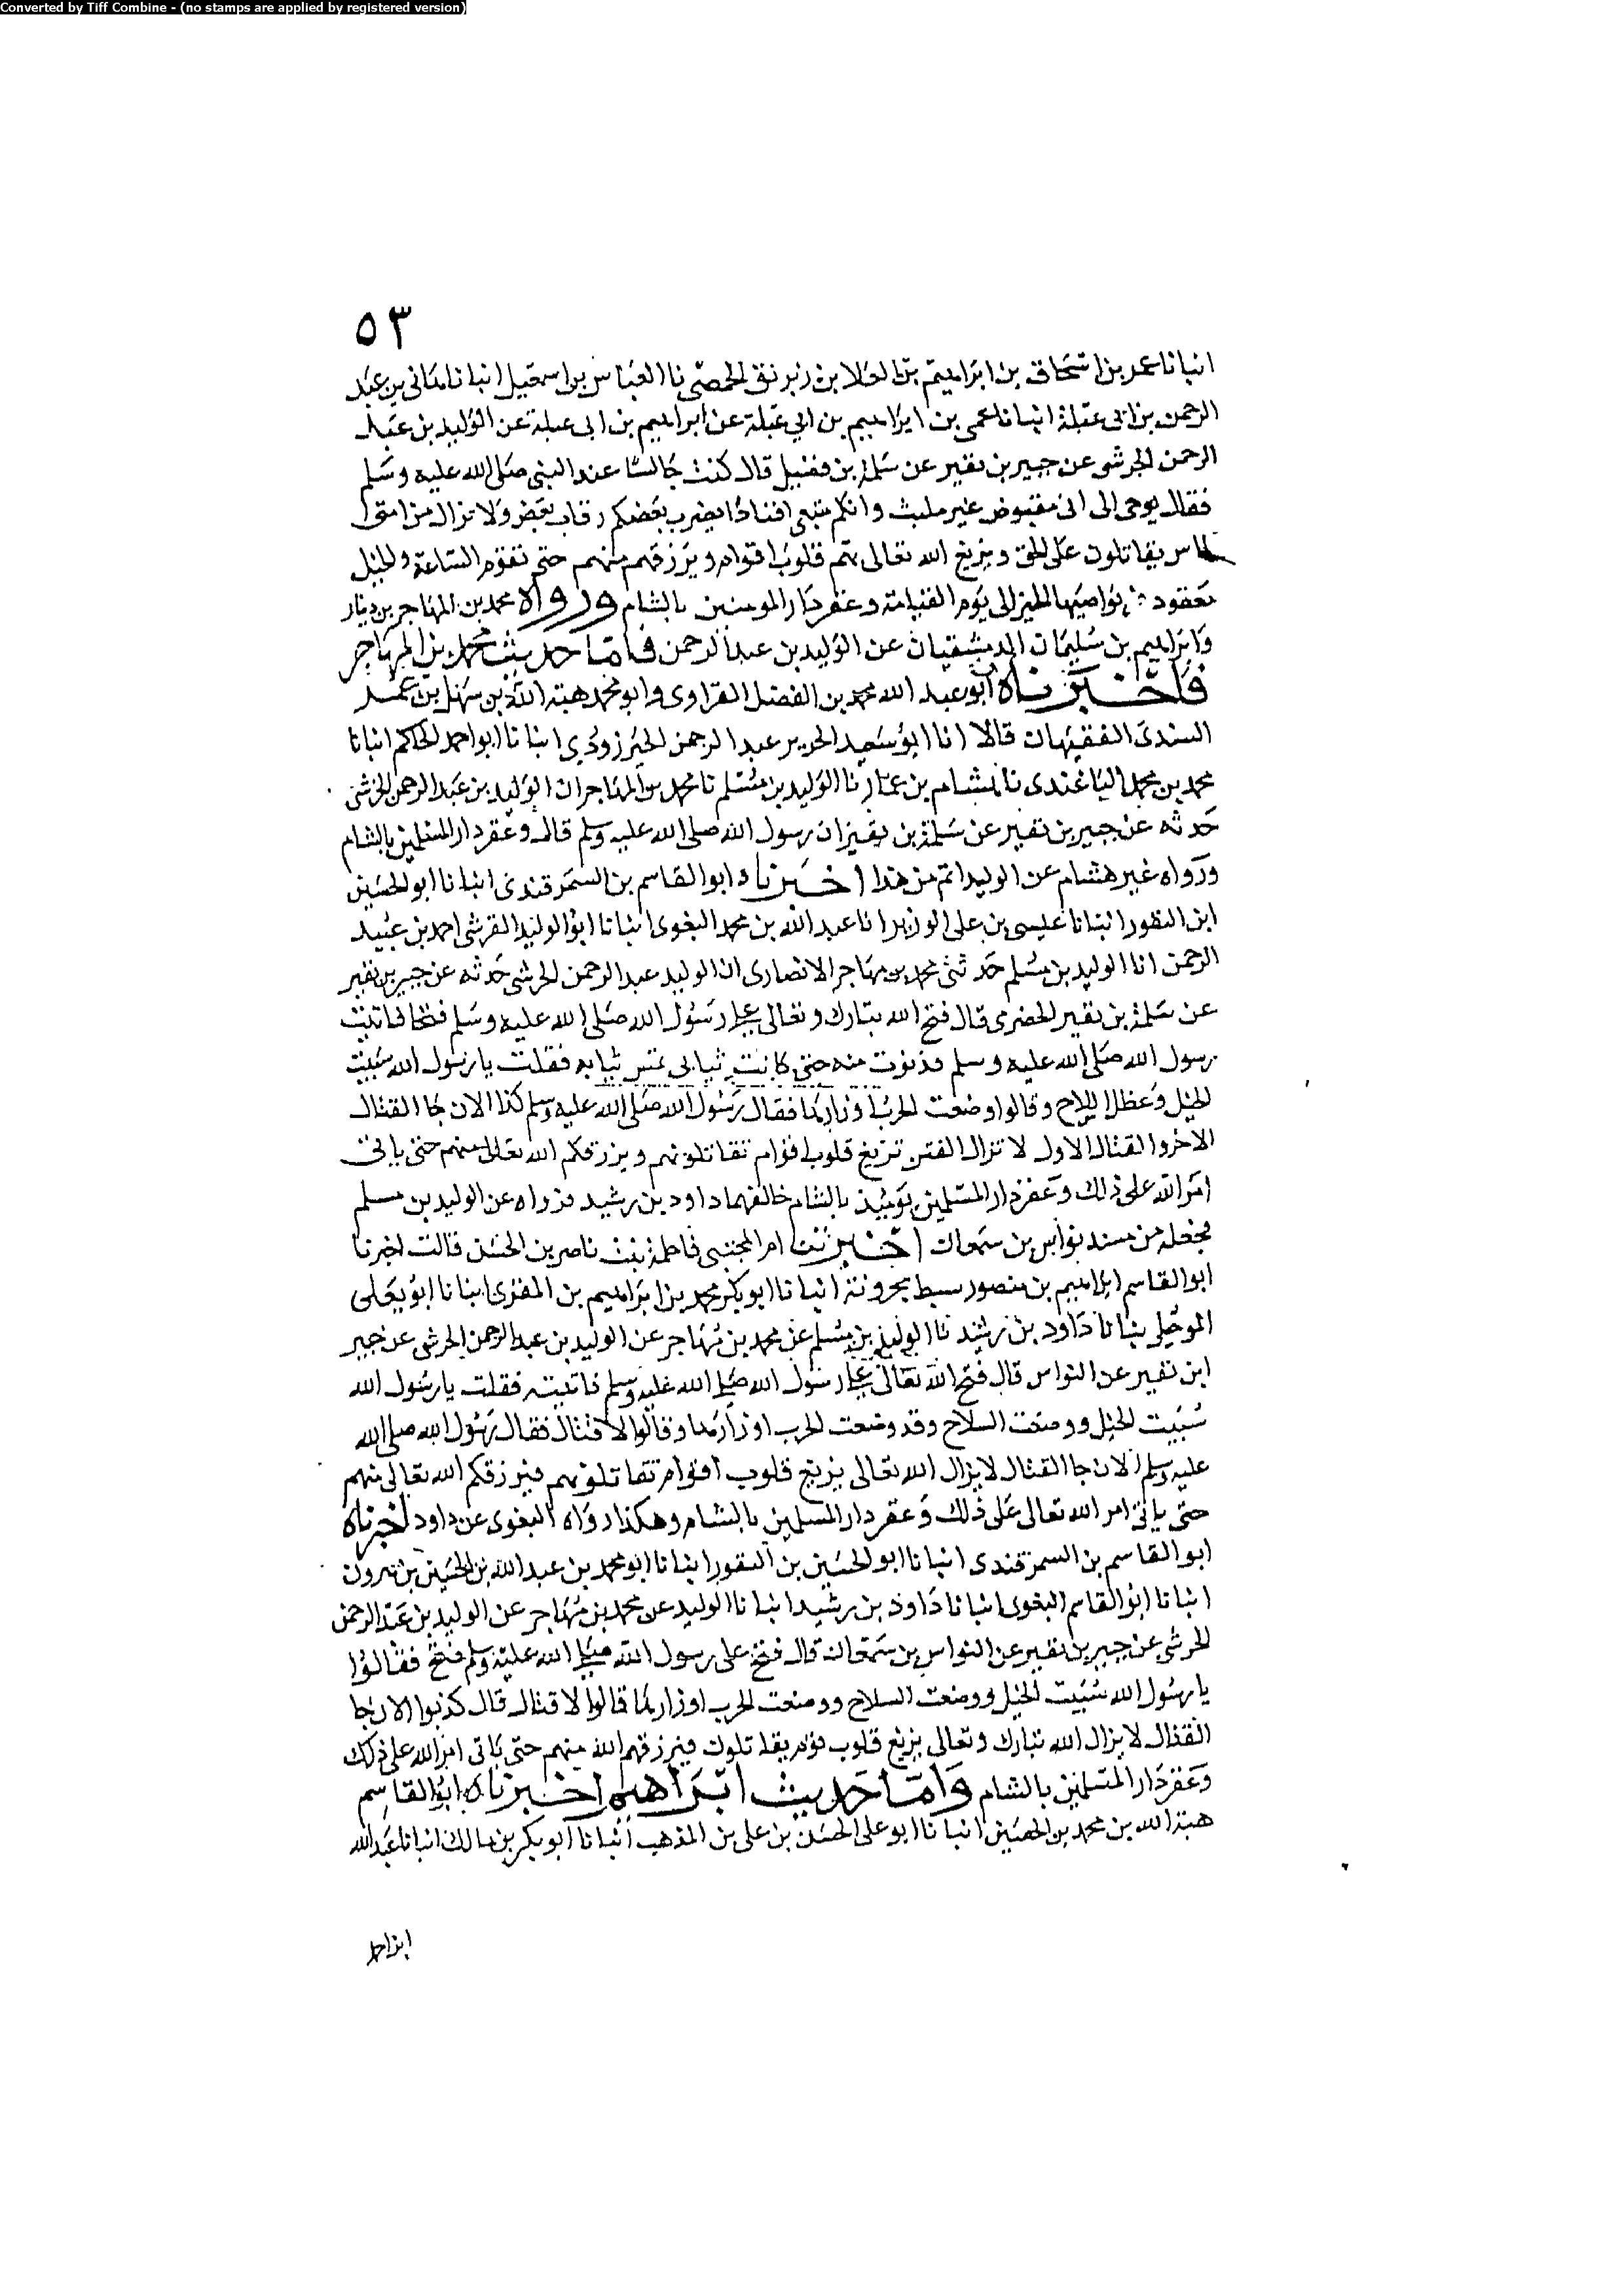 Converted by Tiff Combine - (no stamps are applied by registered version)
٥٣
انبانا عمر بن اسحاق بن ابراهيم بن العلا بن زبرنق الحمصي نا العباس بن اسمعيل انبانا هانى بن عبد
الرحمن بن ابى عبلة انبانا عمى بن ابراهيم بن ابي عبلة عن ابراهيم بن ابى عبلة عن الوليد بن عبد
الرحمن الجرشى عن جبير بن نفير عن سلمة بن نفيل قال كنت جالسا عند النبى صلى الله عليه وسلم
فقال يوحى الى انى مقبوض غير ملبث وانكم متبعى افنادا يضرب بعضكم رقاب بعض ولا تزال من امتى
ناس يقاتلون على الحق ويزيغ الله تعالى بهم قلوب اقوام ويرزقهم منهم حتى تقوم الساعة والخيل
معقود في نواصيها الخير الى يوم القيامة وعقر دار المومنين بالشام ورواه محمد بن المهاجر بن دينار
وابراهيم بن سليمان الدمشقيان عن الوليد بن عبد الرحمن فاما حديث محمد بن المهاجر
فاخبرناه ابو عبد الله محمد بن الفضل الفراوى وابو محمد هبة الله بن سهل بن عمر
السندى الفقيهان قالا انا ابو سعيد الحرير عبد الرحمن الخيرزودي انبانا ابو احمد الحاكم انبانا
محمد بن محمد الباغندى نا هشام بن عمار نا الوليد بن مسلم نا محمد بن المهاجر ان الوليد بن عبد الرحمن الجرشى
حدثه عن جبير بن نفير عن سلمة بن نفير ان رسول الله صلى الله عليه وسلم قال وعقر دار المسلمين بالشام
ورواه غير هشام عن الوليد اتم من هذا اخبرناه ابو القاسم بن السمرقندى انبانا ابو الحسين
ابن النقور انبانا عيسى بن على الوزير انا عبد الله بن محمد البغوى انبانا ابو الوليد القرشى احمد بن عبيد
الرحمن انا الوليد بن مسلم حدثنى محمد بن مهاجر الانصارى ان الوليد عبد الرحمن الجرشى حدثه عن جبير بن نفير
عن سلمة بن نفير الحضرمى قال فتح الله تبارك وتعالى على رسول الله صلى الله عليه وسلم فتحا فاتيت
رسول الله صلى الله عليه وسلم فدنوت منه حتى كانت ثيابى تمس ثيابه فقلت يا رسول الله سيبت
الخيل وعطل السلاح وقالوا وضعت الحرب اوزارها فقال رسول الله صلى الله عليه وسلم كذا الان جا القتال
الاخر والقتال الاول لا تزال الفتن تزيغ قلوب اقوام تقاتلونهم ويرزقكم الله تعالى منهم حتى ياتى
امر الله على ذلك وعقر دار المسلمين يوميذ بالشام خالفهما داود بن رشيد فرواه عن الوليد بن مسلم
فجعله من مسند نواس بن سمعان اخبرتنا ام المجتبى فاطمة بنت ناصر بن الحسن قالت اخبرنا
ابو القاسم ابراهيم بن منصور سبط بحرونة انبانا ابو بكر محمد بن ابراهيم بن المقرى انبانا ابو يعلى
الموصلي انبانا داود بن رشيد نا الوليد بن مسلم عن محمد بن مهاجر عن الوليد بن عبد الرحمن الجرشى عن جبير
ابن نفير عن النواس قال فتح الله تعالى على رسول الله صلى الله عليه وسلم فاتيته فقلت يا رسول الله
سيبت الخيل ووضعت السلاح وقد وضعت الحرب اوزارها وقالوا لا قتال فقال رسول الله صلى الله
عليه وسلم الان جا القتال لا يزال الله تعالى يزيغ قلوب اقوام تقاتلونهم فيرزقكم الله تعالى منهم
حتى ياتى امر الله تعالى على ذلك وعقر دار المسلمين بالشام وهكذا رواه البغوى عن داود اخبرناه
ابو القاسم بن السمرقندى انبانا ابو الحسين بن النقور انبانا ابو محمد بن عبد الله بن الحسين بن هرون
انبانا ابو القاسم البغوى انبانا داود بن رشيد انبانا الوليد عن محمد بن مهاجر عن الوليد بن عبد الرحمن
الجرشي عن جبير بن نفير عن النواس بن سمعان قال فتح على رسول الله صلى الله عليه وسلم فتح فقالوا
يا رسول الله سيبت الخيل ووضعت السلاح ووضعت الحرب اوزارها قالوا لا قتال قال كذبوا الان جا
القتال لا يزال الله تبارك وتعالى يزيغ قلوب قوم يقاتلون فيرزقهم الله منهم حتى ياتى امر الله على ذلك
وعقر دار المسلمين بالشام واما حديث ابراهيم اخبرناه ابو القاسم
هبة الله بن محمد بن الحصين انبانا ابو على الحسن بن على بن المذهب انبانا ابو بكر بن مالك انبانا عبد الله
ابن احمد